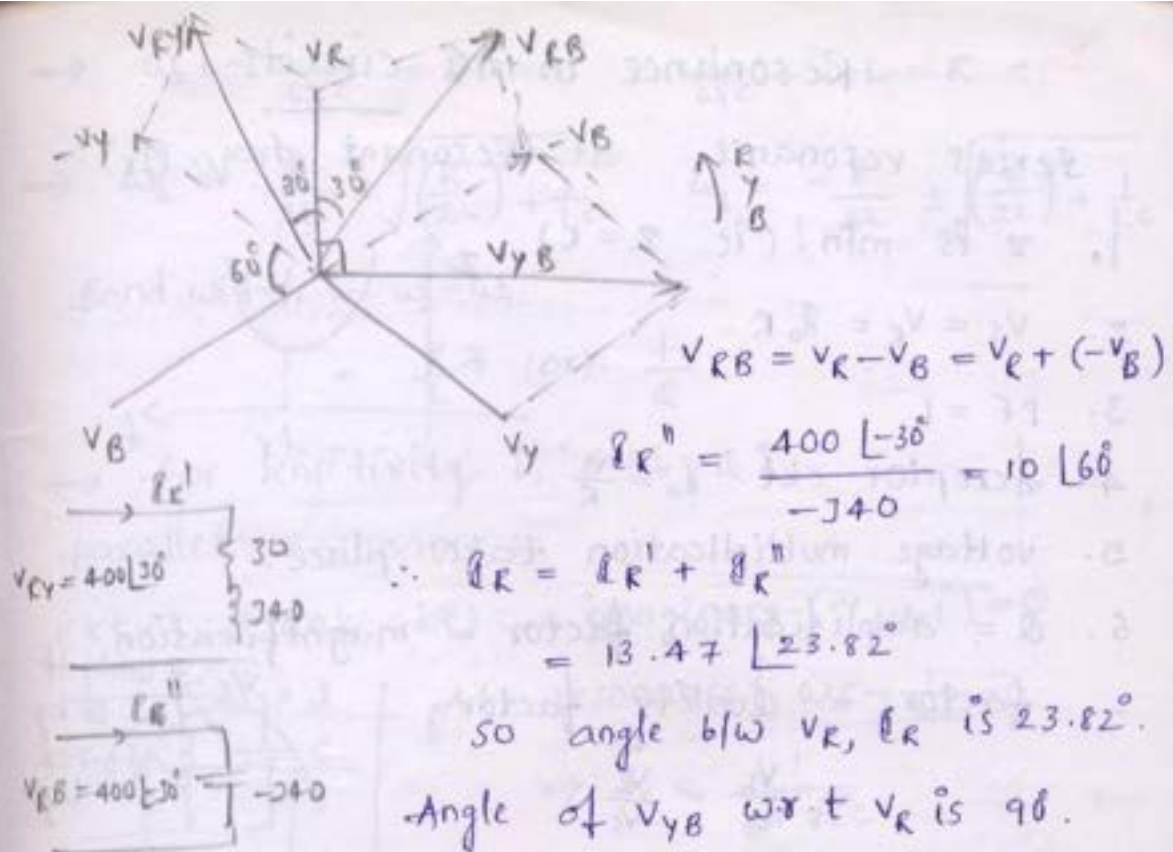 V_RY
V_R
V_RB
-V_Y
-V_B
30°
30°
60°
V_YB
R
Y
B
V_B
V_Y
V_RB = V_R - V_B = V_R + (-V_B)
I_R" = 400 ∠-30° / -J40 = 10 ∠60°
I_R'
V_RY = 400∠30°
30
J40
∴ I_R = I_R' + I_R"
= 13.47 ∠23.82°
I_R"
V_RB = 400∠-30°
-J40
so angle b/w V_R, I_R is 23.82°.
Angle of V_YB w.r.t V_R is 90°.